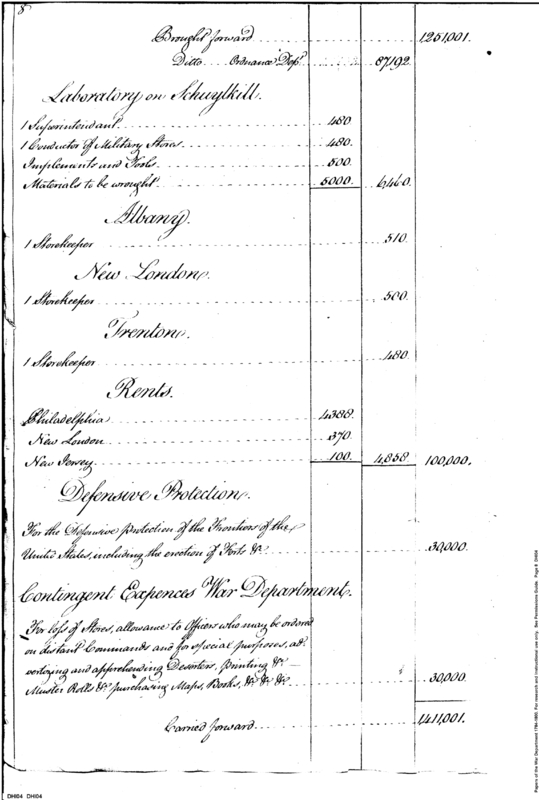 8
Brought forward 1,251,001.
Ditto Ordnance Dept. 87,192.
Laboratory on Schuylkill.
1 Superintendant 480
1 Conductor of Military Stores 480.
Implements and Tools 500
Materials to be wrought 5000. 6,460.
Albany.
1 Storekeeper 510
New London.
1 Storekeeper 500.
Trenton.
1 Storekeeper 480
Rents.
Philadelphia 4388.
New London 370.
New Jersey 100. 4,858. 100,000.
Defensive Protection.
For the Defensive protection of the Frontiers of the
United States, including the erection of Forts &c. 30,000.
Contingent Expences War Department.
For loss of Stores, allowance to Officers who may be ordered
on distant Commands and for special purposes, ad-
vertizing and apprehending Deserters, printing &c
Muster Rolls &c. purchasing Maps, Books, &c. &c. &c. 30,000.
Carried forward 1,411,001.
DHI04 DHI04
Papers of the War Department 1784-1800. For research and instructional use only. See Permissions Guide. Page 8 DHI04